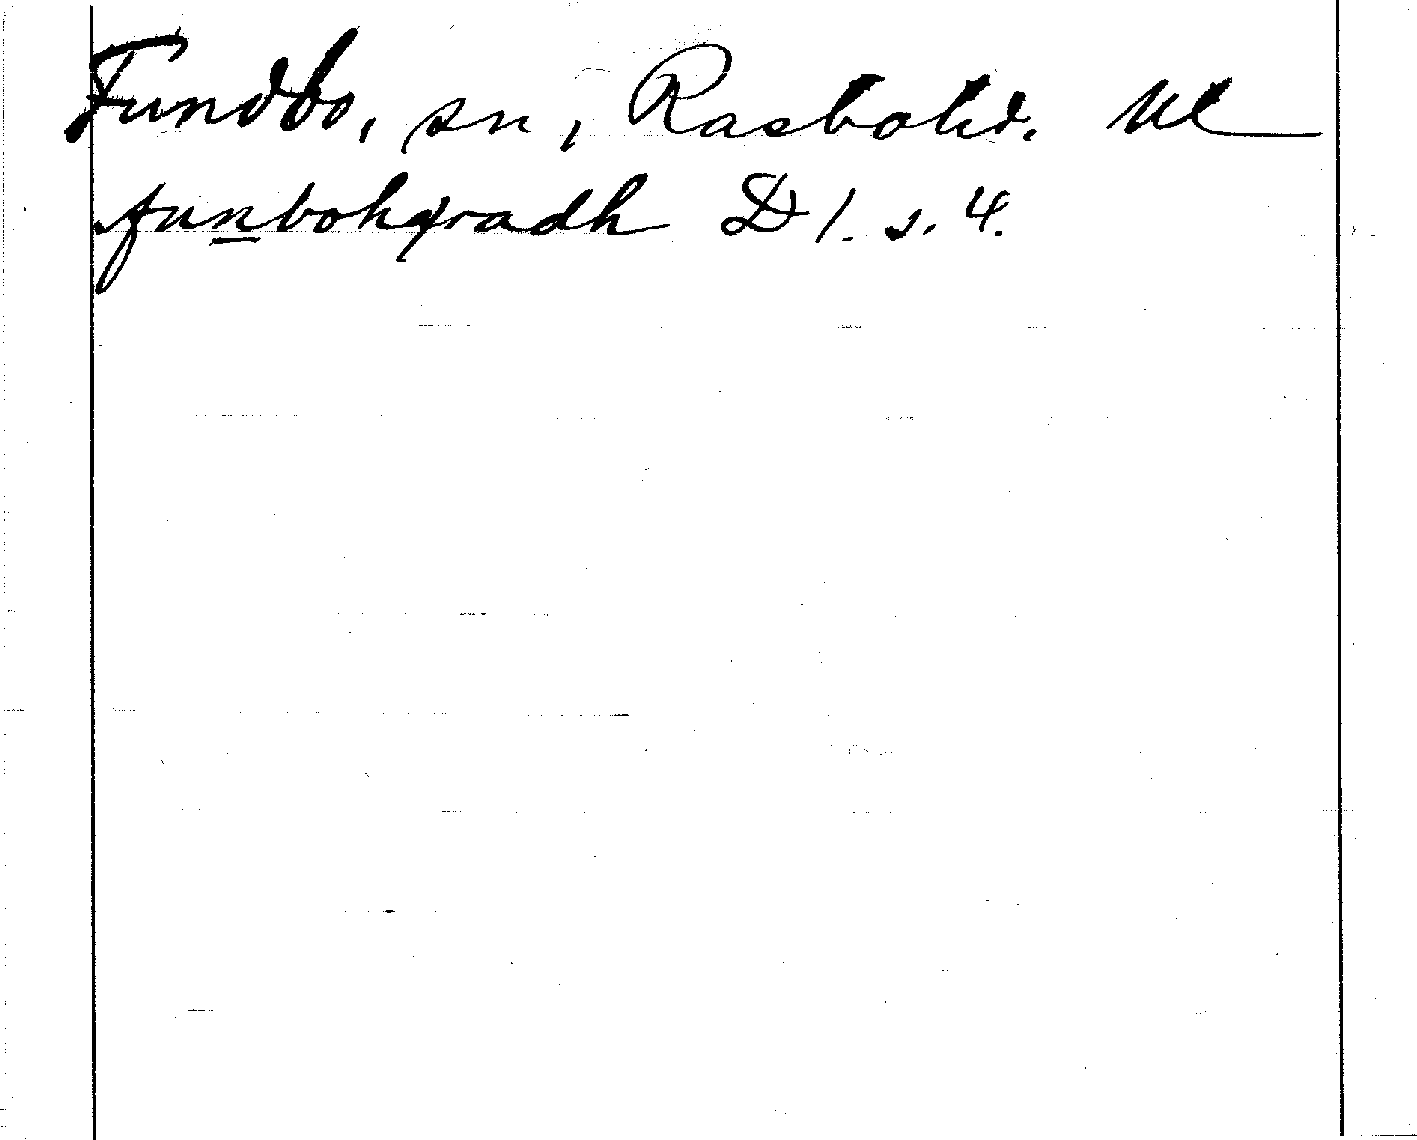 Fundbo, sn, Rasbohd. Ul
funbohgradh D 1. s. 4.